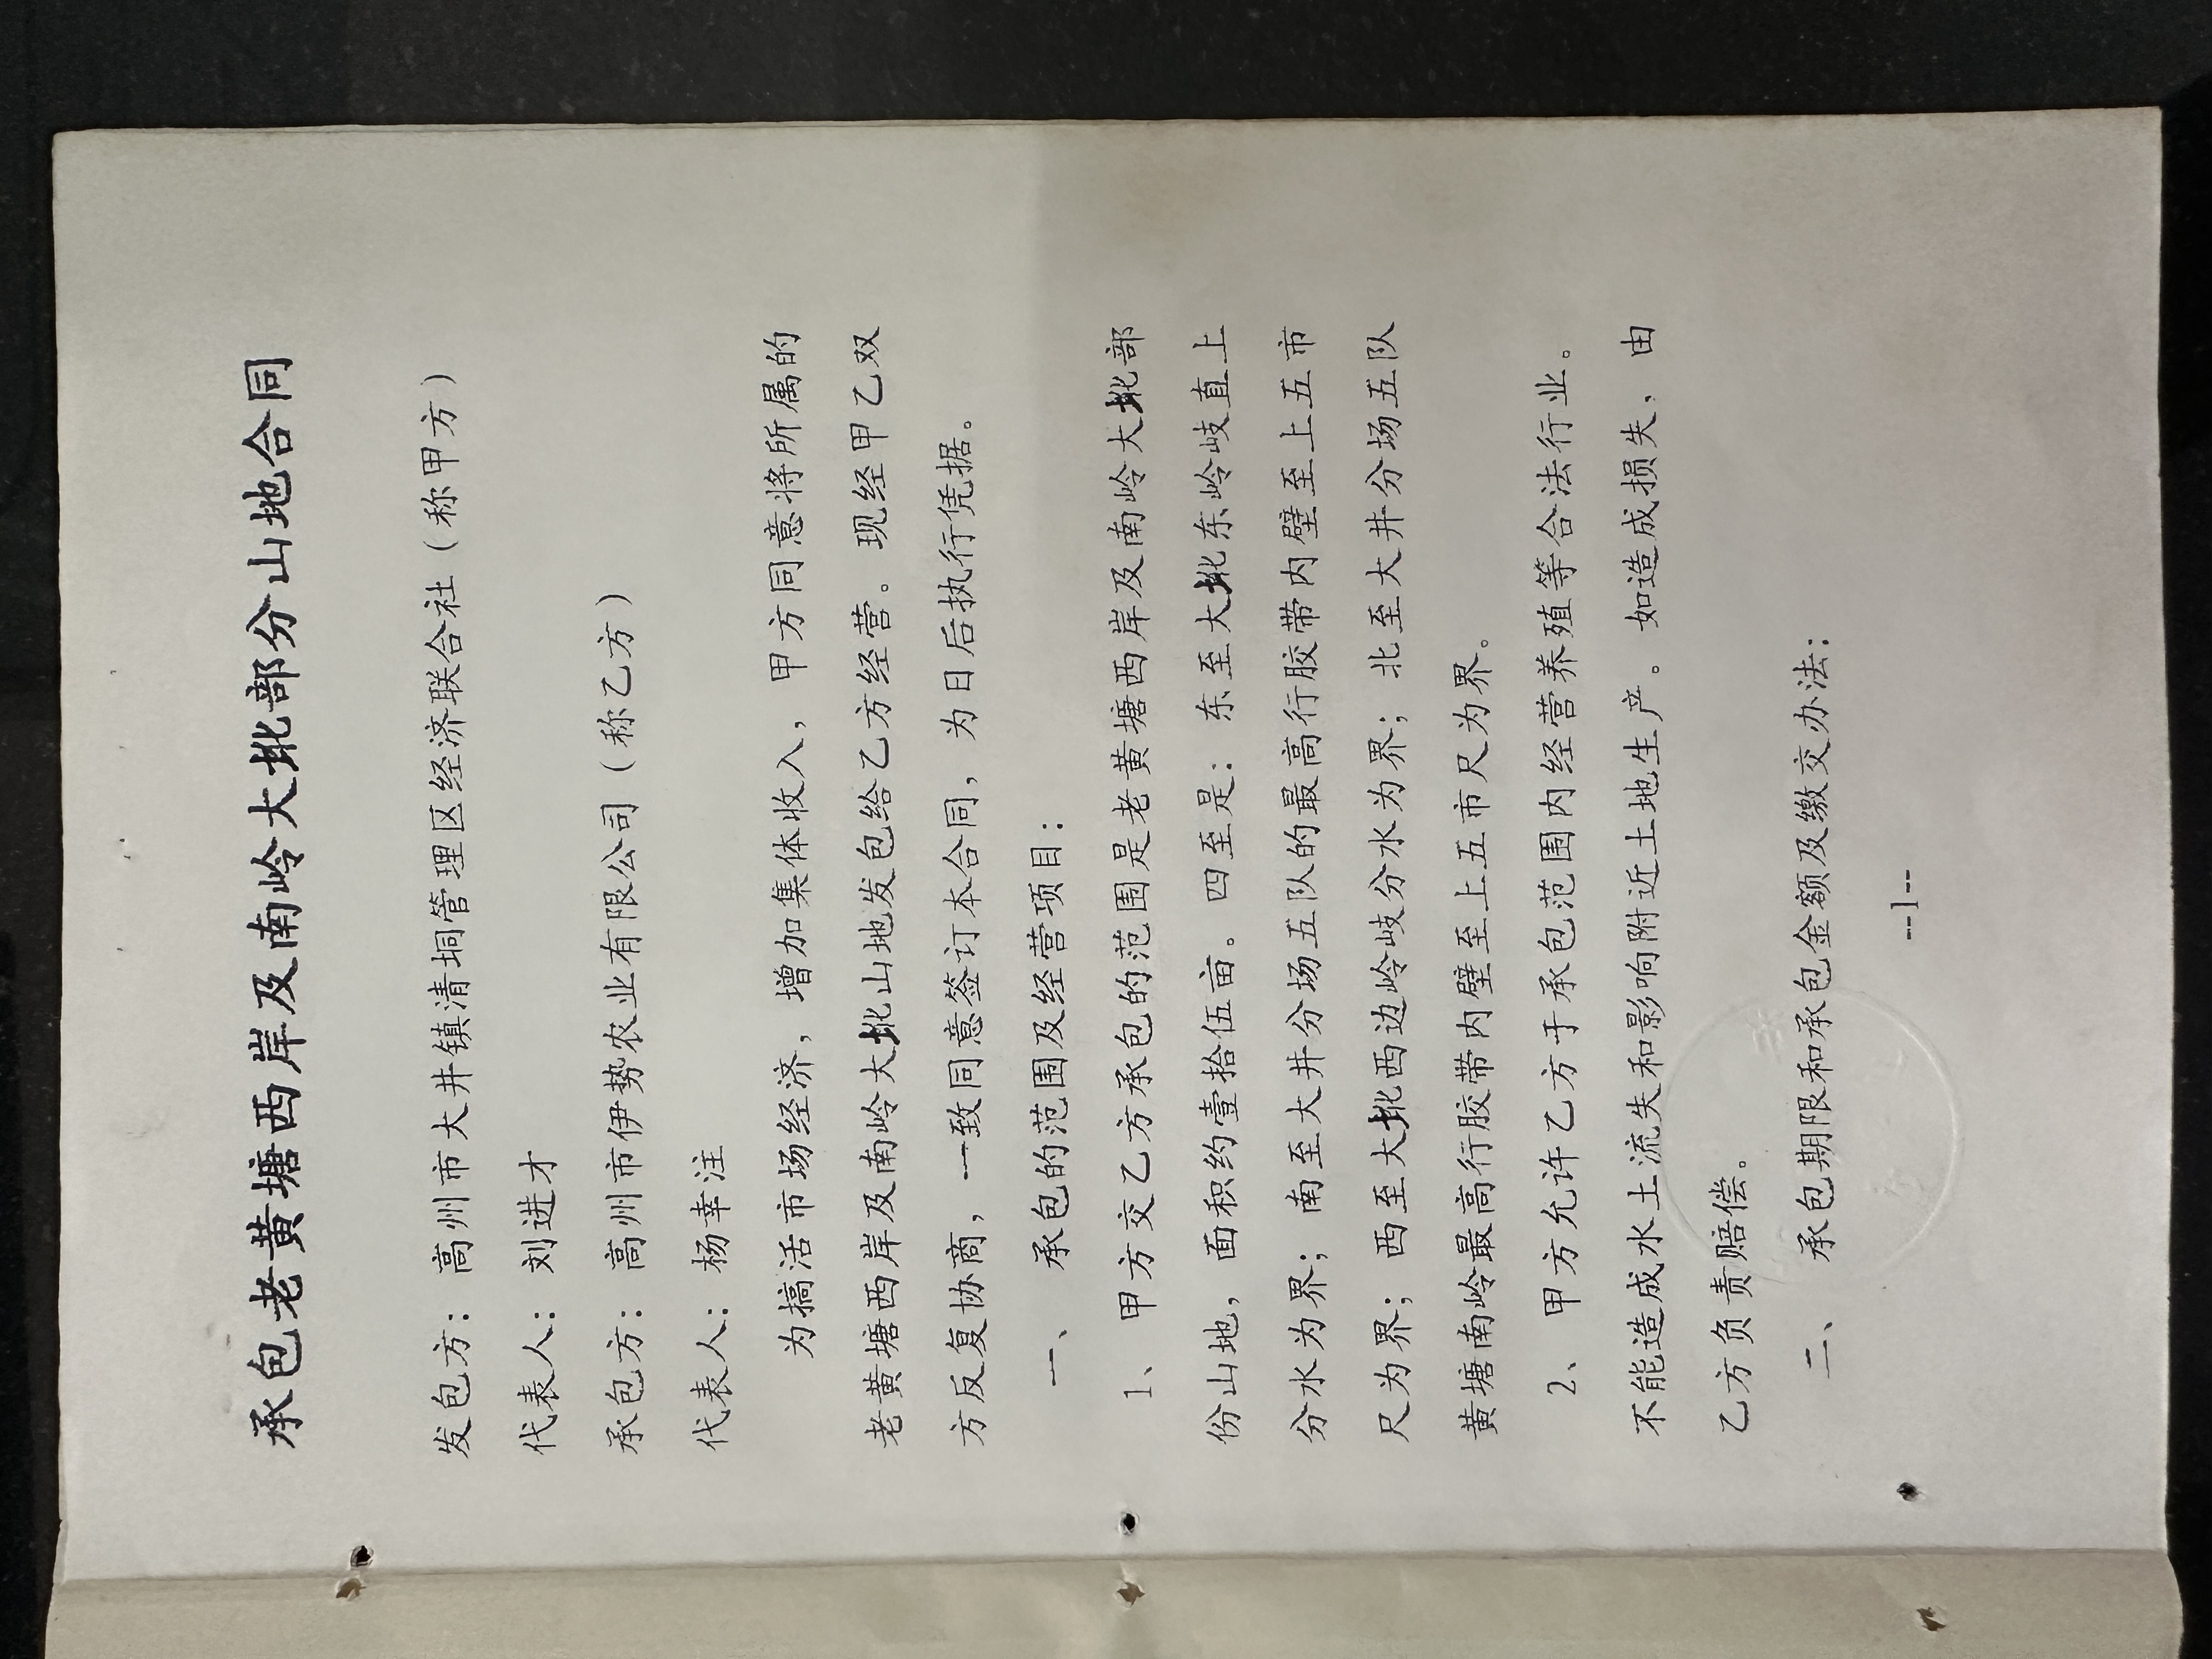 承包老黄塘西岸及南岭大㘵部分山地合同
发包方：高州市大井镇清垌管理区经济联合社（称甲方）
代表人：刘进才
承包方：高州市伊势农业有限公司（称乙方）
代表人：杨幸注
为搞活市场经济，增加集体收入，甲方同意将所属的
老黄塘西岸及南岭大㘵山地发包给乙方经营。现经甲乙双
方反复协商，一致同意签订本合同，为日后执行凭据。
一、 承包的范围及经营项目：
1、甲方交乙方承包的范围是老黄塘西岸及南岭大㘵部
份山地，面积约壹拾伍亩。四至是：东至大㘵东岭岐直上
分水为界；南至大井分场五队的最高行胶带内壁至上五市
尺为界；西至大㘵西边岭岐分水为界；北至大井分场五队
黄塘南岭最高行胶带内壁至上五市尺为界。
2、甲方允许乙方于承包范围内经营养殖等合法行业。
不能造成水土流失和影响附近土地生产。如造成损失，由
乙方负责赔偿。
二、 承包期限和承包金额及缴交办法：
--1--